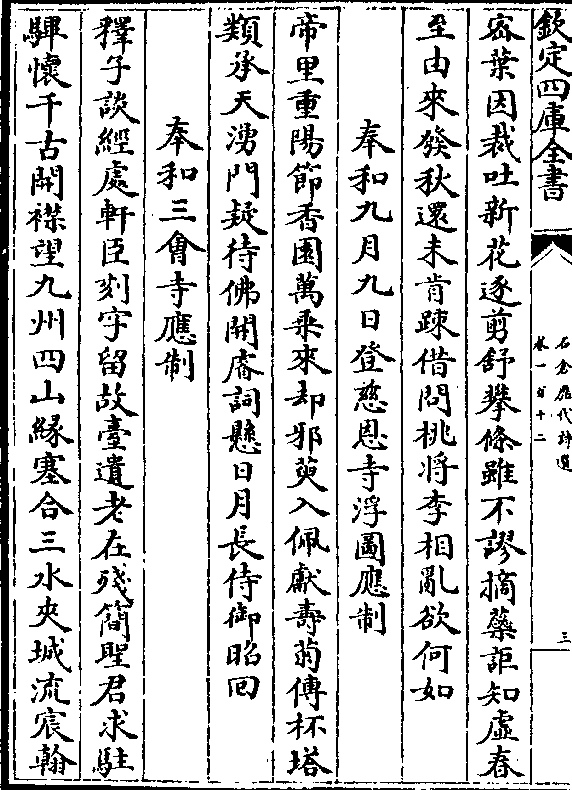 欽定四庫全書
石倉歷代詩選
卷一百十二
三
密葉因裁吐新花逐剪舒攀條雖不謬摘蘂詎知虛春
至由來發秋還未肯踈借問桃將李相亂欲何如
奉和九月九日登慈恩寺浮圖應制
帝里重陽節香園萬乗來却邪萸入佩獻壽菊傳杯塔
類承天湧門疑待佛開睿詞懸日月長侍御昭回
奉和三㑹寺應制
釋子談經處軒臣刻字留故臺遺老在殘簡聖君求駐
驆懷千古開襟望九州四山縁塞合三水夾城流宸翰